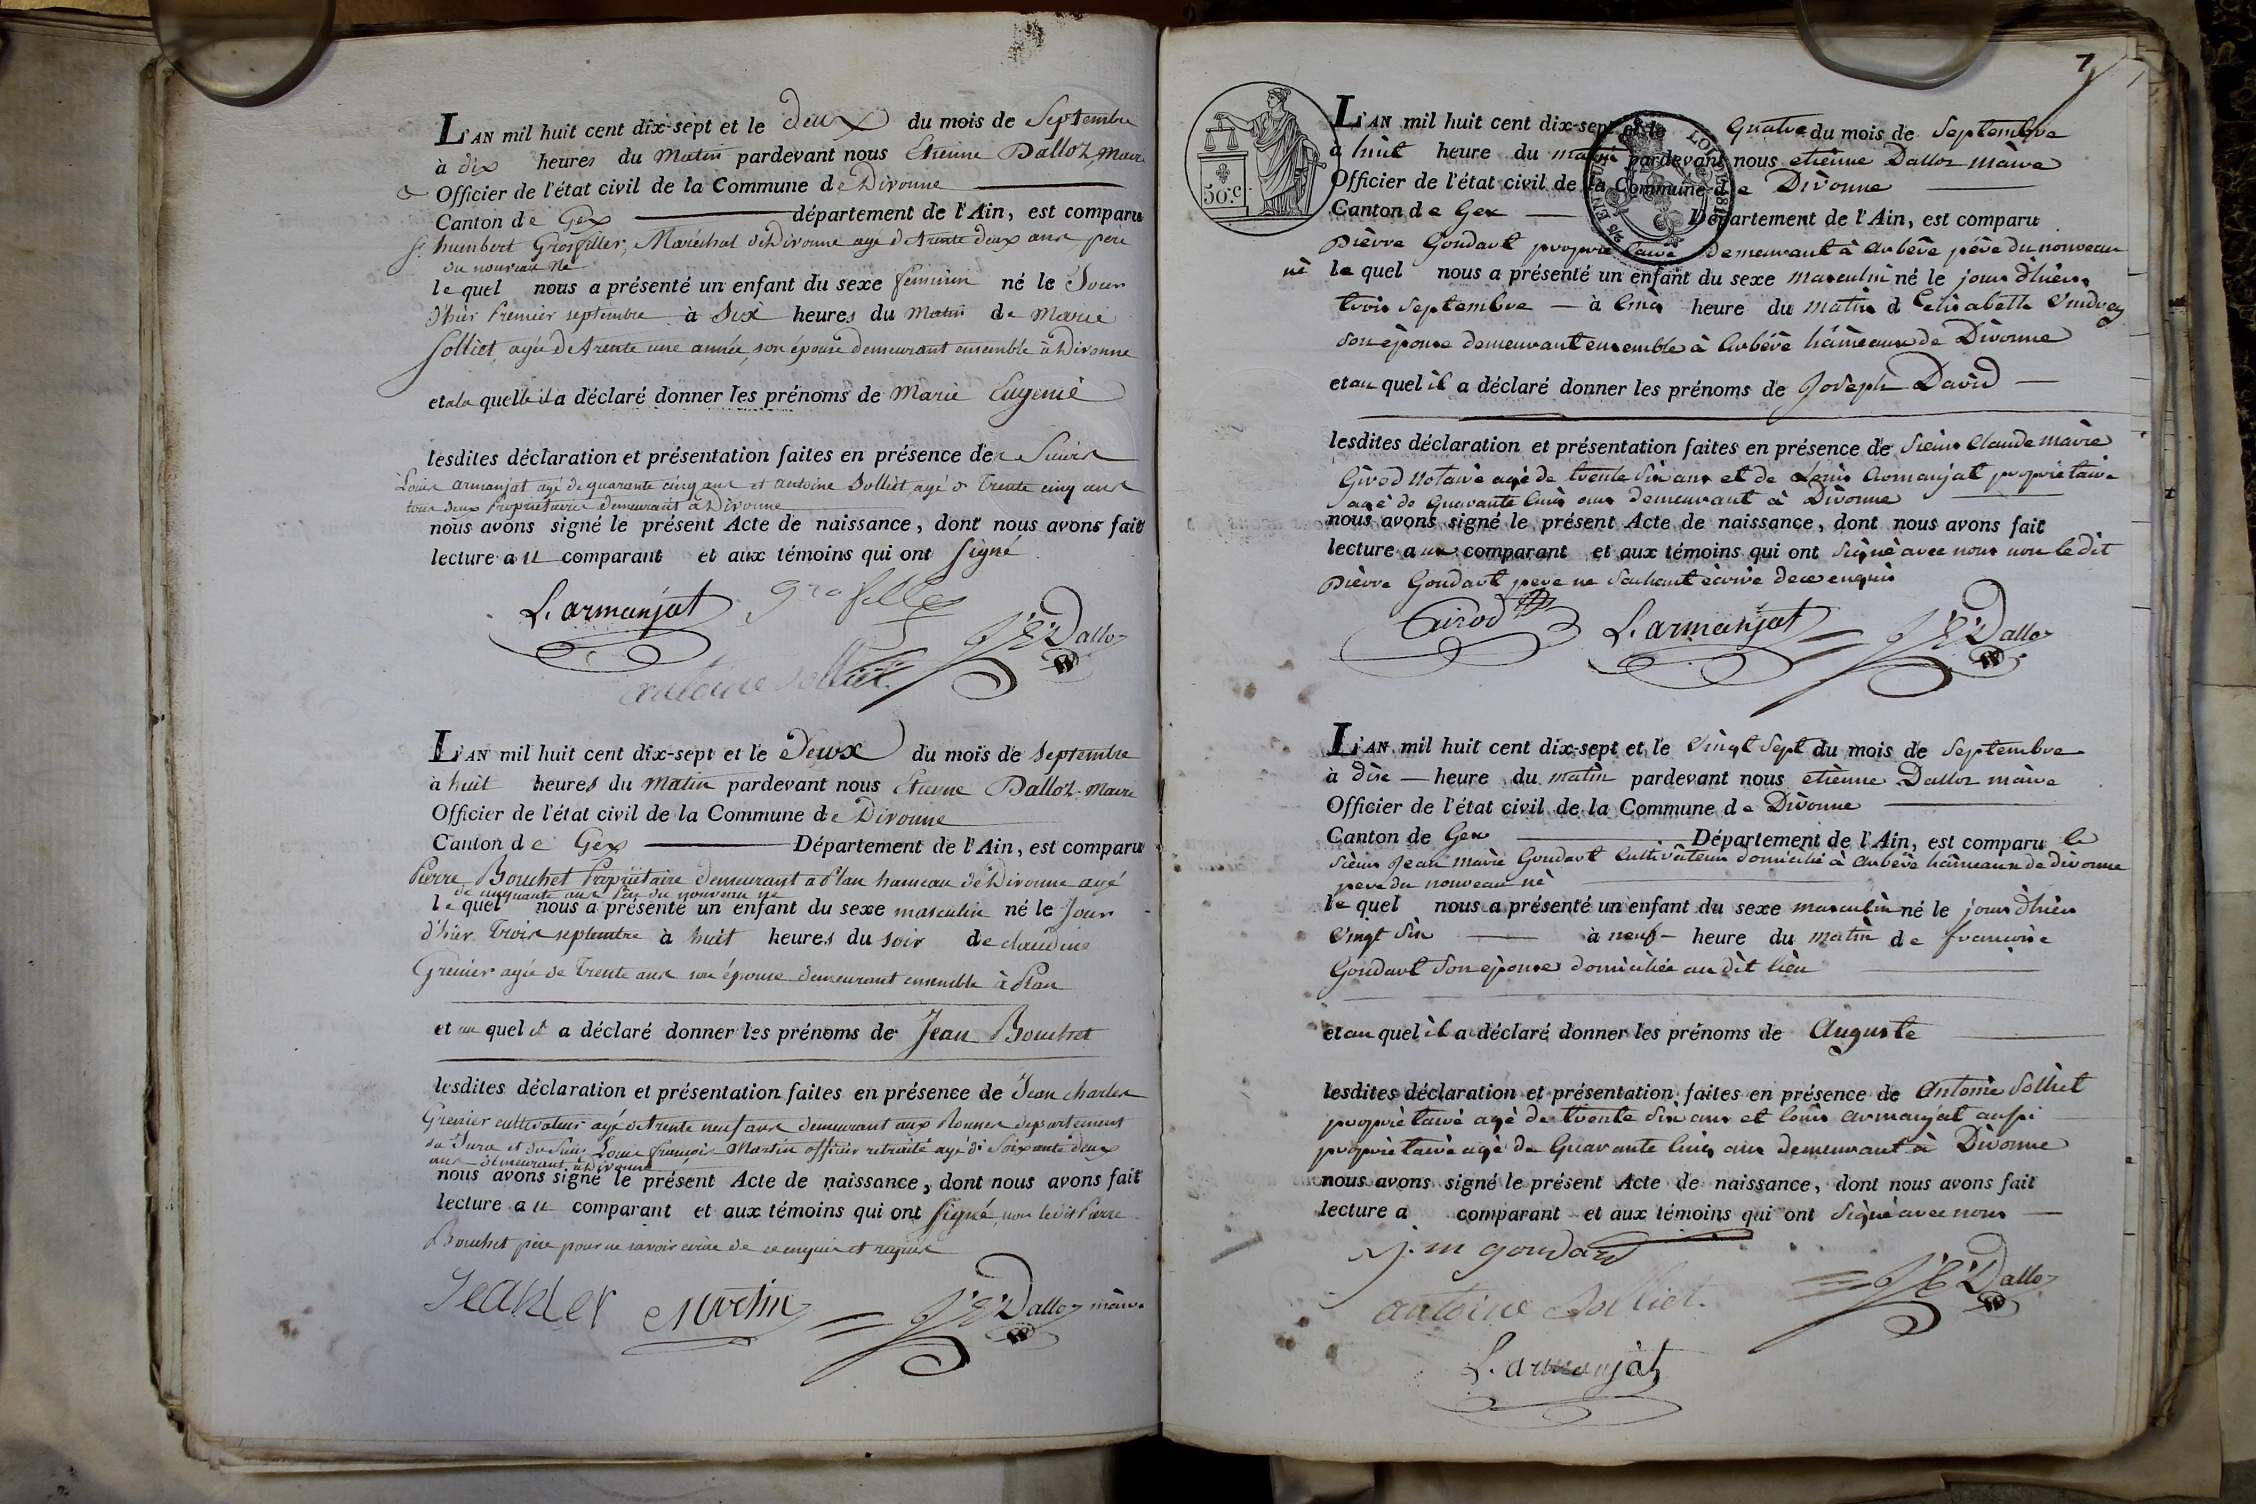 L'AN mil huit cent dix-sept et le deux du mois de Septembre
à dix heures du Matin pardevant nous Etienne Dalloz Maire
Officier de l'état civil de la Commune de Divonne
Canton de Gex département de l'Ain, est comparu
Sr. humbert Grosfiller, Maréchal à Divonne agé de trente deux ans père
du nouveau né
le quel nous a présenté un enfant du sexe féminin né le Jour
d'hier Premier septembre à Six heures du Matin de Marie
Solliet, agée de trente une année, son épouse demeurant ensemble à Divonne
et a la quelle il a déclaré donner les prénoms de Marie Eugenie
lesdites déclaration et présentation faites en présence des Sieurs
Louis armanjat agé de quarante cinq ans et antoine Solliet agé de Trente cinq ans
tous deux Propriétaires demeurants à Divonne
nous avons signé le présent Acte de naissance, dont nous avons fait
lecture au comparant et aux témoins qui ont signé
L. armanjat grosfiller
J. E. Dalloz
antoine Solliet
L'AN mil huit cent dix-sept et le Deux du mois de Septembre
à huit heures du Matin pardevant nous Etienne Dalloz Maire
Officier de l'état civil de la Commune de Divonne
Canton de Gex Département de l'Ain, est comparu
Pierre Bouchet Propriétaire demeurant a Plan hameau de Divonne agé
de cinquante ans Père du nouveau né
le quel nous a présenté un enfant du sexe masculin né le Jour
d'hier Trois septembre à huit heures du soir de claudine
Grenier agée de Trente ans son épouse demeurant ensemble à Plan
et au quel il a déclaré donner les prénoms de Jean Bouchet
lesdites déclaration et présentation faites en présence de Jean charles
Grenier cultivateur agé de trente neuf ans demeurant aux Rousses departement
du Jura et du Sieur Louis françois Martin officier retraité agé de Soixante deux
ans demeurant à Divonne
nous avons signé le présent Acte de naissance, dont nous avons fait
lecture au comparant et aux témoins qui ont signé, non ledit Pierre
Bouchet père pour ne savoir écrire de ce enquis et requis
Martin J. E. Dalloz maire
7
50.c
L'AN mil huit cent dix-sept et le Quatre du mois de Septembre
à huit heure du matin pardevant nous etiènne Dalloz maire
Officier de l'état civil de la Commune de Divonne
Canton de Gex Département de l'Ain, est comparu
Pièrre Goudart proprietaire demeurant à arbère père du nouveau
né le quel nous a présenté un enfant du sexe masculin né le jour d'hièr
trois Septembre à Cinq heure du matin d'Elisabeth
son épouse demeurant ensemble à arbère hâmeaux de Divonne
et au quel il a déclaré donner les prénoms de Joseph David
lesdites déclaration et présentation faites en présence de Sieur Claude marie
Girod Notaire agé de trente Six ans et de Louis armanjat proprietaire
agé de Quarante Cinq ans demeurant à Divonne
nous avons signé le présent Acte de naissance, dont nous avons fait
lecture au comparant et aux témoins qui ont Signé avec nous non le dit
Pièrre Goudart pere ne Sachant écrire de ce enquis
Girod L. armanjat J. E. Dalloz
L'AN mil huit cent dix-sept et le vingt Sept du mois de Septembre
à dix heure du matin pardevant nous etiènne Dalloz maire
Officier de l'état civil de la Commune de Divonne
Canton de Gex Département de l'Ain, est comparu le
Sieur Jean marie Goudart Cultivateur domicilié à arbère hâmeaux de divonne
pere du nouveau né
le quel nous a présenté un enfant du sexe masculin né le jour d'hièr
vingt Six à neuf heure du matin de francoise
Goudart Son épouse domiciliée au dit lieu
et au quel il a déclaré donner les prénoms de Auguste
lesdites déclaration et présentation faites en présence de Antoine Solliet
proprietaire agé de trente Six ans et louis armanjat aussi
proprietaire agé de Quarante Cinq ans demeurant à Divonne
nous avons signé le présent Acte de naissance, dont nous avons fait
lecture a comparant et aux témoins qui ont Signé avec nous
J. m goudard
antoine Solliet J. E. Dalloz
L. armanjat